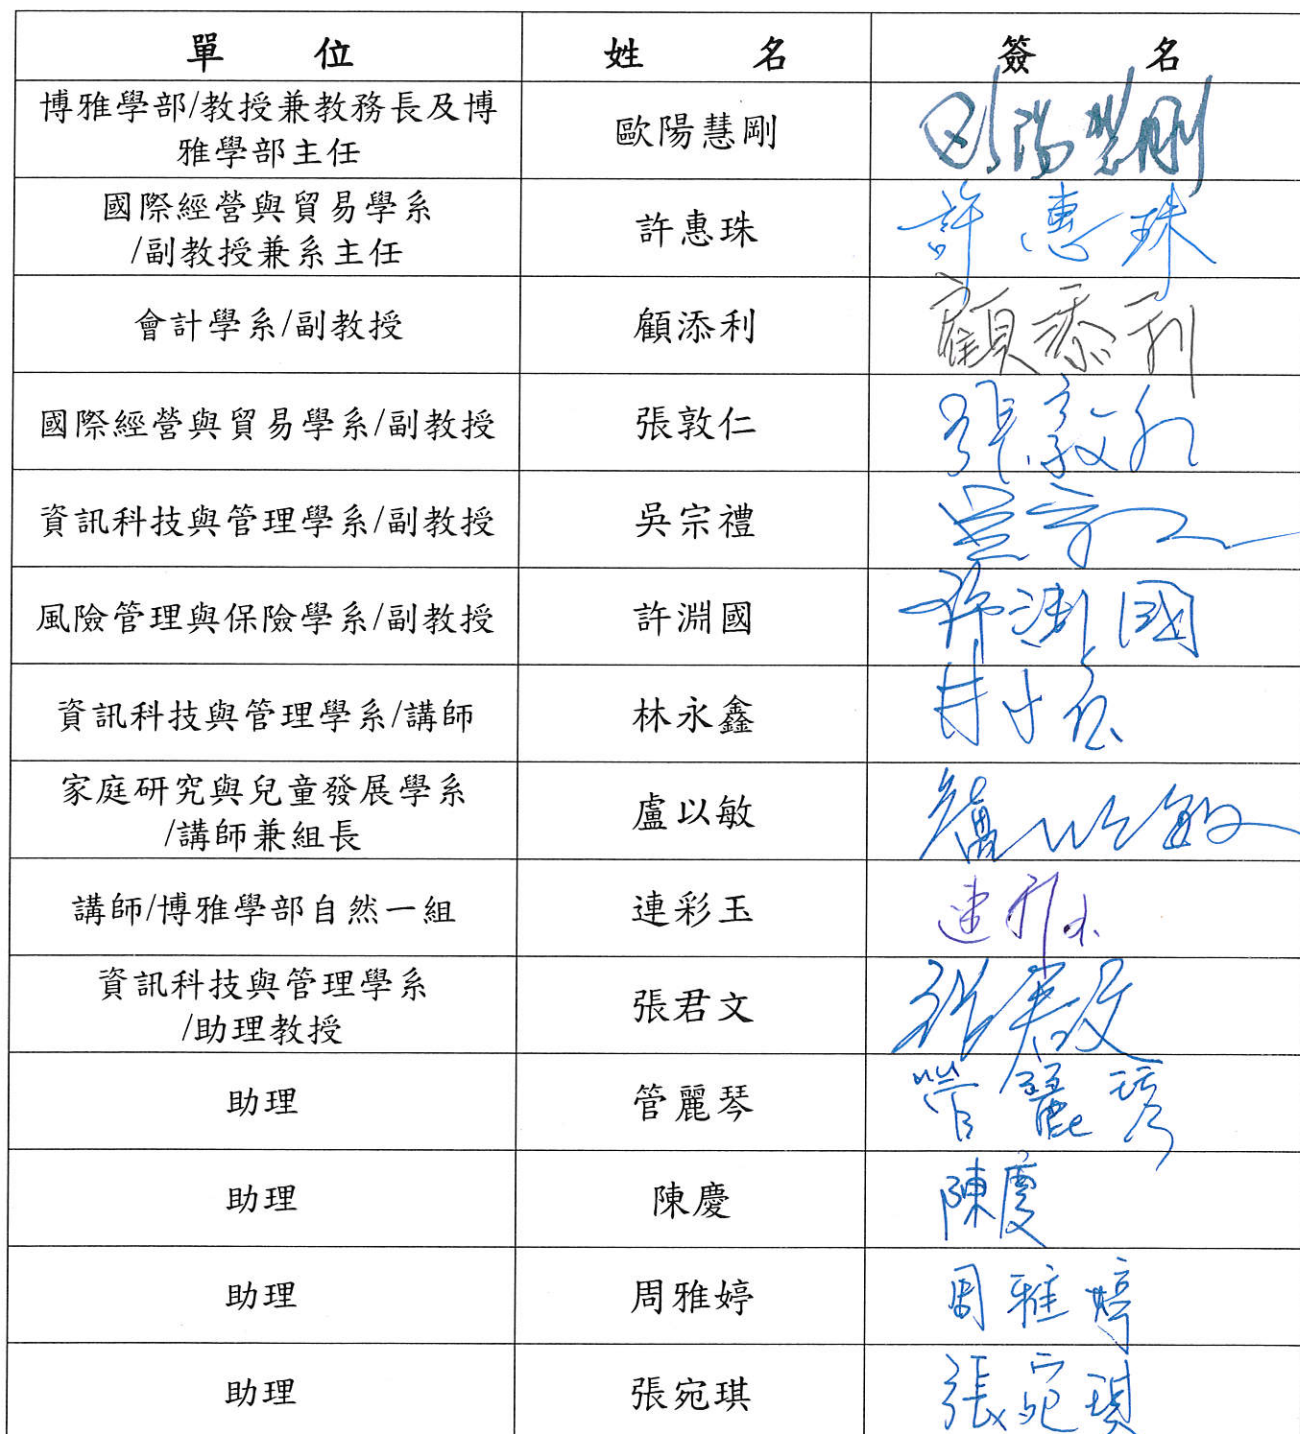 單位 姓名 簽名
博雅學部/教授兼教務長及博
雅學部主任
歐陽慧剛
歐陽慧剛
國際經營與貿易學系
/副教授兼系主任
許惠珠
許惠珠
會計學系/副教授
顧添利
顧添利
國際經營與貿易學系/副教授
張敦仁
張敦仁
資訊科技與管理學系/副教授
吳宗禮
風險管理與保險學系/副教授
許淵國
許淵國
資訊科技與管理學系/講師
林永鑫
家庭研究與兒童發展學系
/講師兼組長
盧以敏
盧以敏
講師/博雅學部自然一組
連彩玉
資訊科技與管理學系
/助理教授
張君文
張君文
助理
管麗琴
管麗琴
助理
陳慶
陳慶
助理
周雅婷
周雅婷
助理
張宛琪
張宛琪